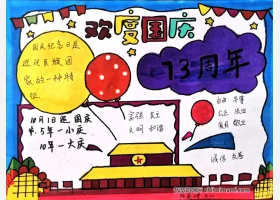 欢度国庆
73周年
国庆纪念日是
近代民族国
家的一种特
征
10月1日是国庆
5年一小庆
10年一大庆
富强 民主
文明 和谐
自由 平等
公正 法治
爱国 敬业
诚信 友善